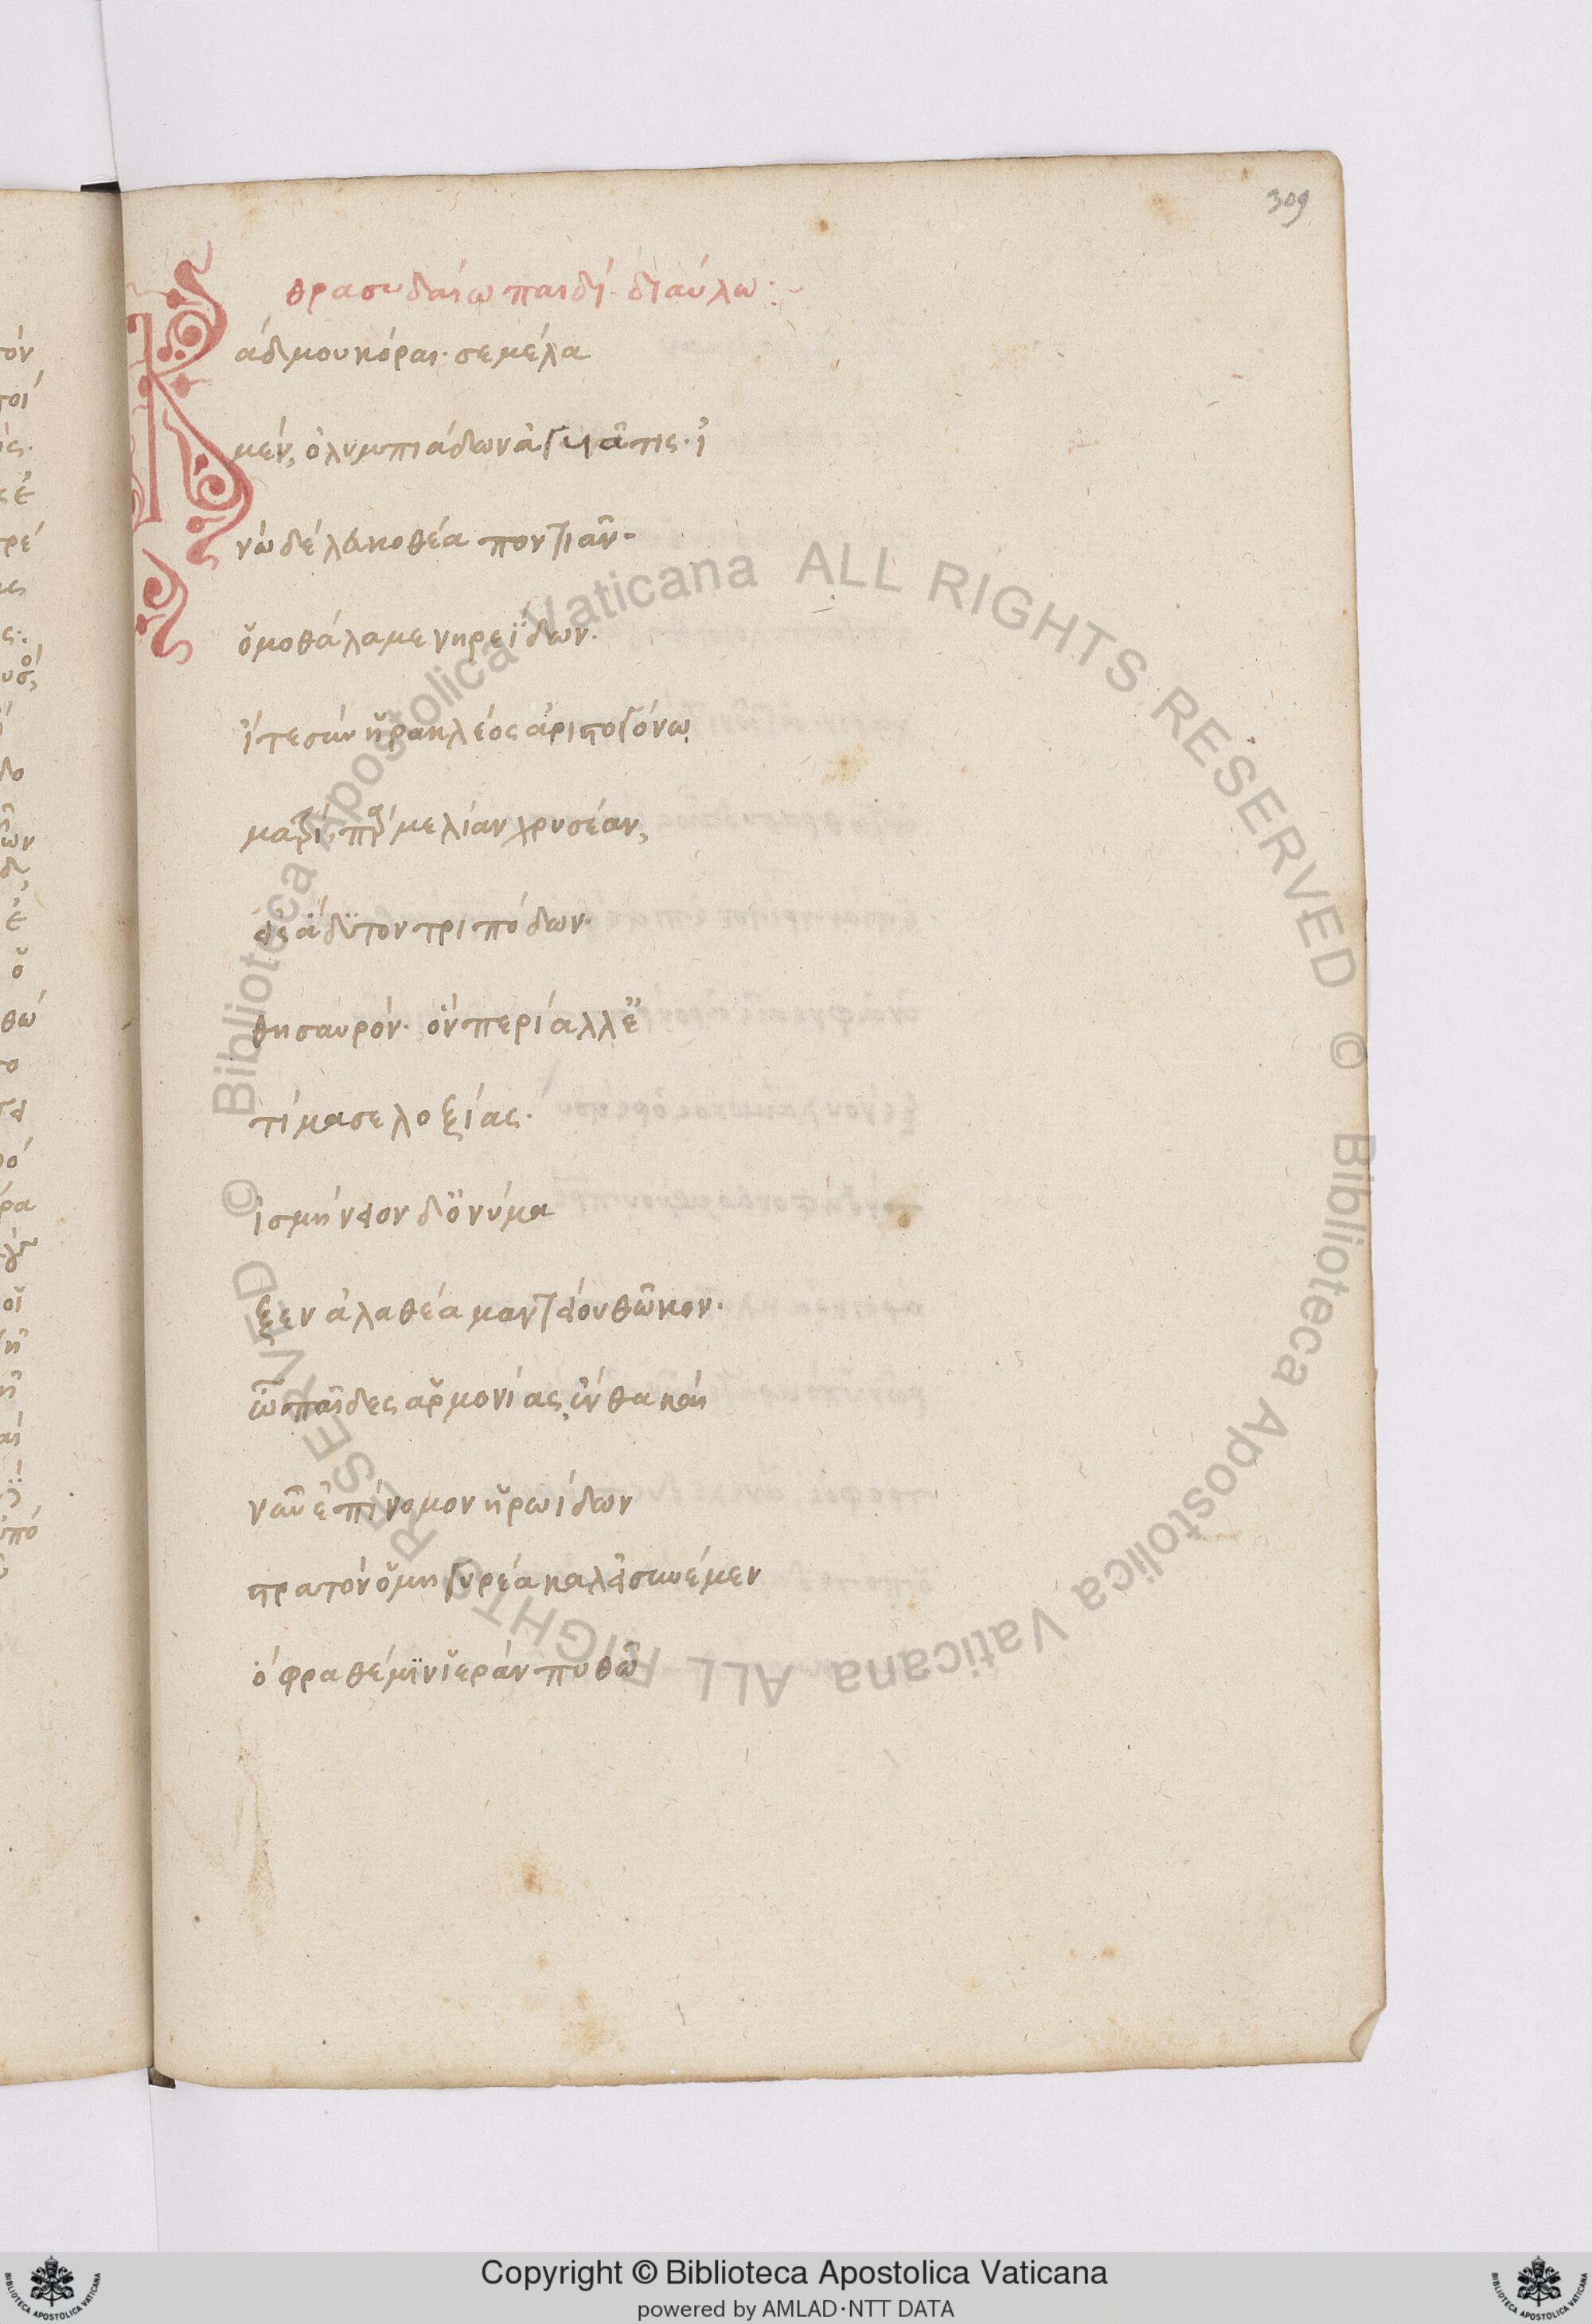 309
θρασυδαίω παιδί· διαύλω:
Κάδμου κόραι· σεμέλα
μέν, ὀλυμπιάδων ἀγυιᾶτις· ἰ
νὼ δέ λευκοθέα ποντιᾶν·
ὁμοθάλαμε νηρεΐδων·
ἴτε σύν ἡρακλέος ἀριστογόνω
ματρί πὰρ μελίαν χρυσέαν,
εἰς ἄδυτον τριπόδων·
θησαυρόν· ὃν περίαλλ' ἐ
τίμασε λοξίας·
ἰσμήνειον δ' ὀνύμα
ξεν ἀλαθέα μαντείου θῶκον·
ὦ παῖδες ἁρμονίας, ἔνθα καί
νῦν ἐπίνομον ἡρωίδων
στρατόν ὁμηγυρέα καλεῖ συνέμεν
ὄφρα θέμιν ἱεράν πυθῶ
© Biblioteca Apostolica Vaticana ALL RIGHTS RESERVED
© Biblioteca Apostolica Vaticana ALL RIGHTS RESERVED
Copyright © Biblioteca Apostolica Vaticana
powered by AMLAD·NTT DATA